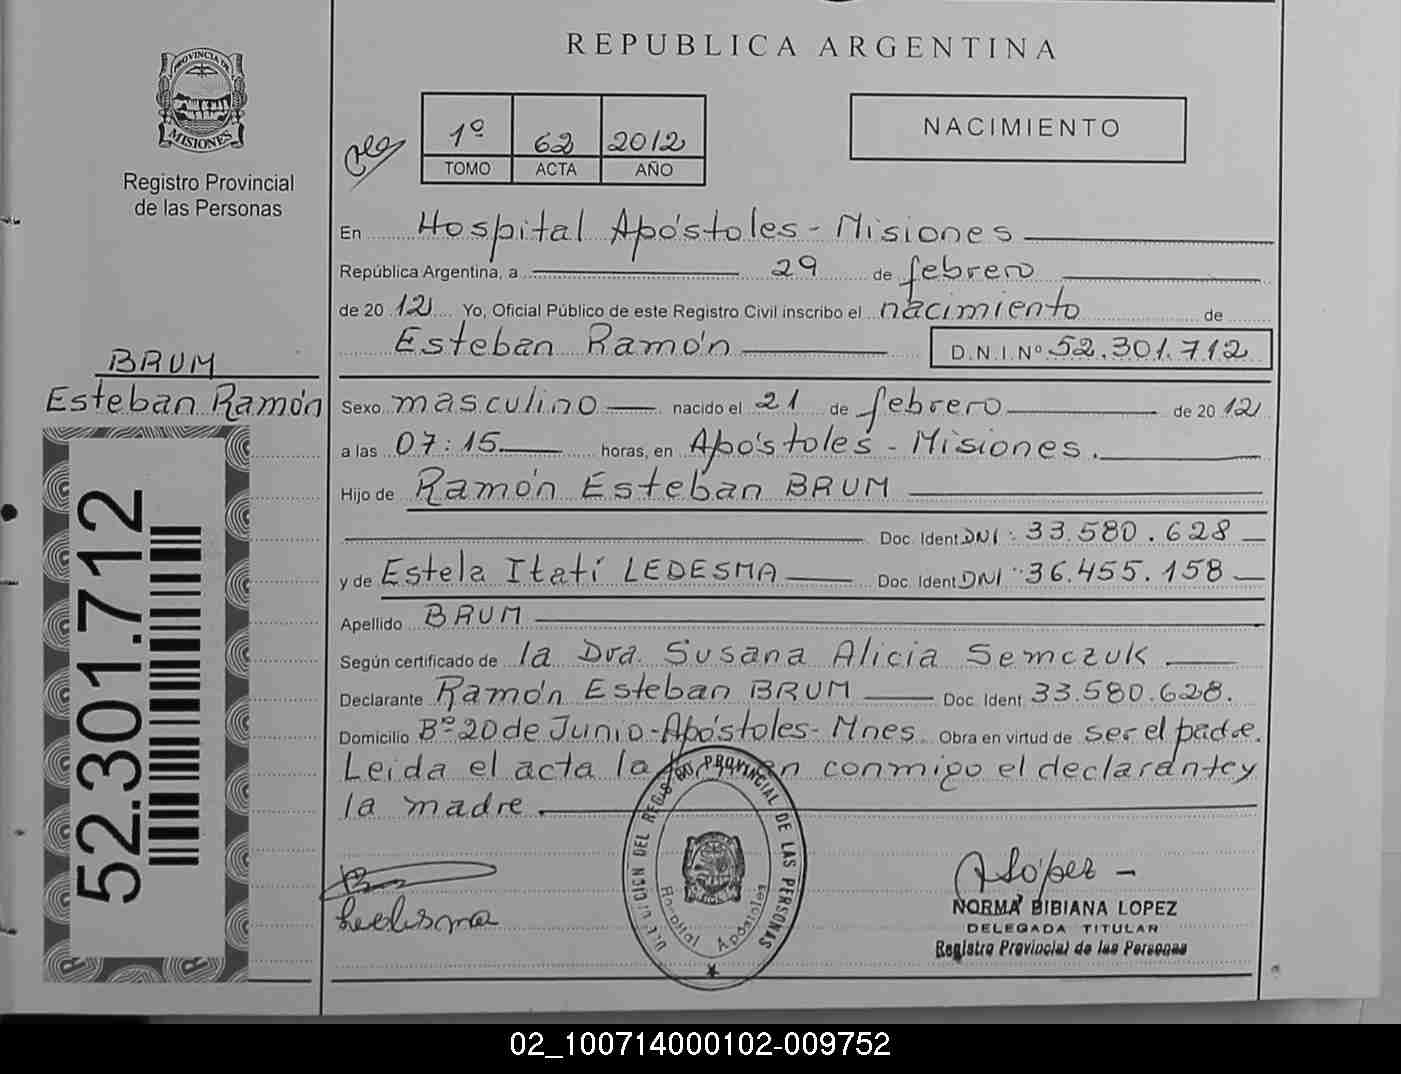 REPUBLICA ARGENTINA
PROVINCIA DE
MISIONES
Registro Provincial
de las Personas
1º 62 2012
TOMO ACTA AÑO
NACIMIENTO
En Hospital Apóstoles - Misiones
República Argentina, a 29 de febrero
de 20 12 Yo, Oficial Público de este Registro Civil inscribo el nacimiento de
Esteban Ramón D.N.I. Nº 52.301.712
BRUM
Esteban Ramón
Sexo masculino nacido el 21 de febrero de 20 12
a las 07:15 horas, en Apóstoles - Misiones.
Hijo de Ramón Esteban BRUM
Doc. Ident DNI: 33.580.628
y de Estela Itatí LEDESMA Doc. Ident DNI: 36.455.158
Apellido BRUM
Según certificado de la Dra. Susana Alicia Semczuk
Declarante Ramón Esteban BRUM Doc. Ident. 33.580.628.
Domicilio Bº 20 de Junio - Apóstoles - Mnes. Obra en virtud de ser el padre.
Leída el acta la conmigo el declarante y
la madre.
52.301.712
PROVINCIAL DE LAS PERSONAS
Hospital Apóstoles
Ledesma
NLópez -
NORMA BIBIANA LOPEZ
DELEGADA TITULAR
Registro Provincial de las Personas
02_100714000102-009752